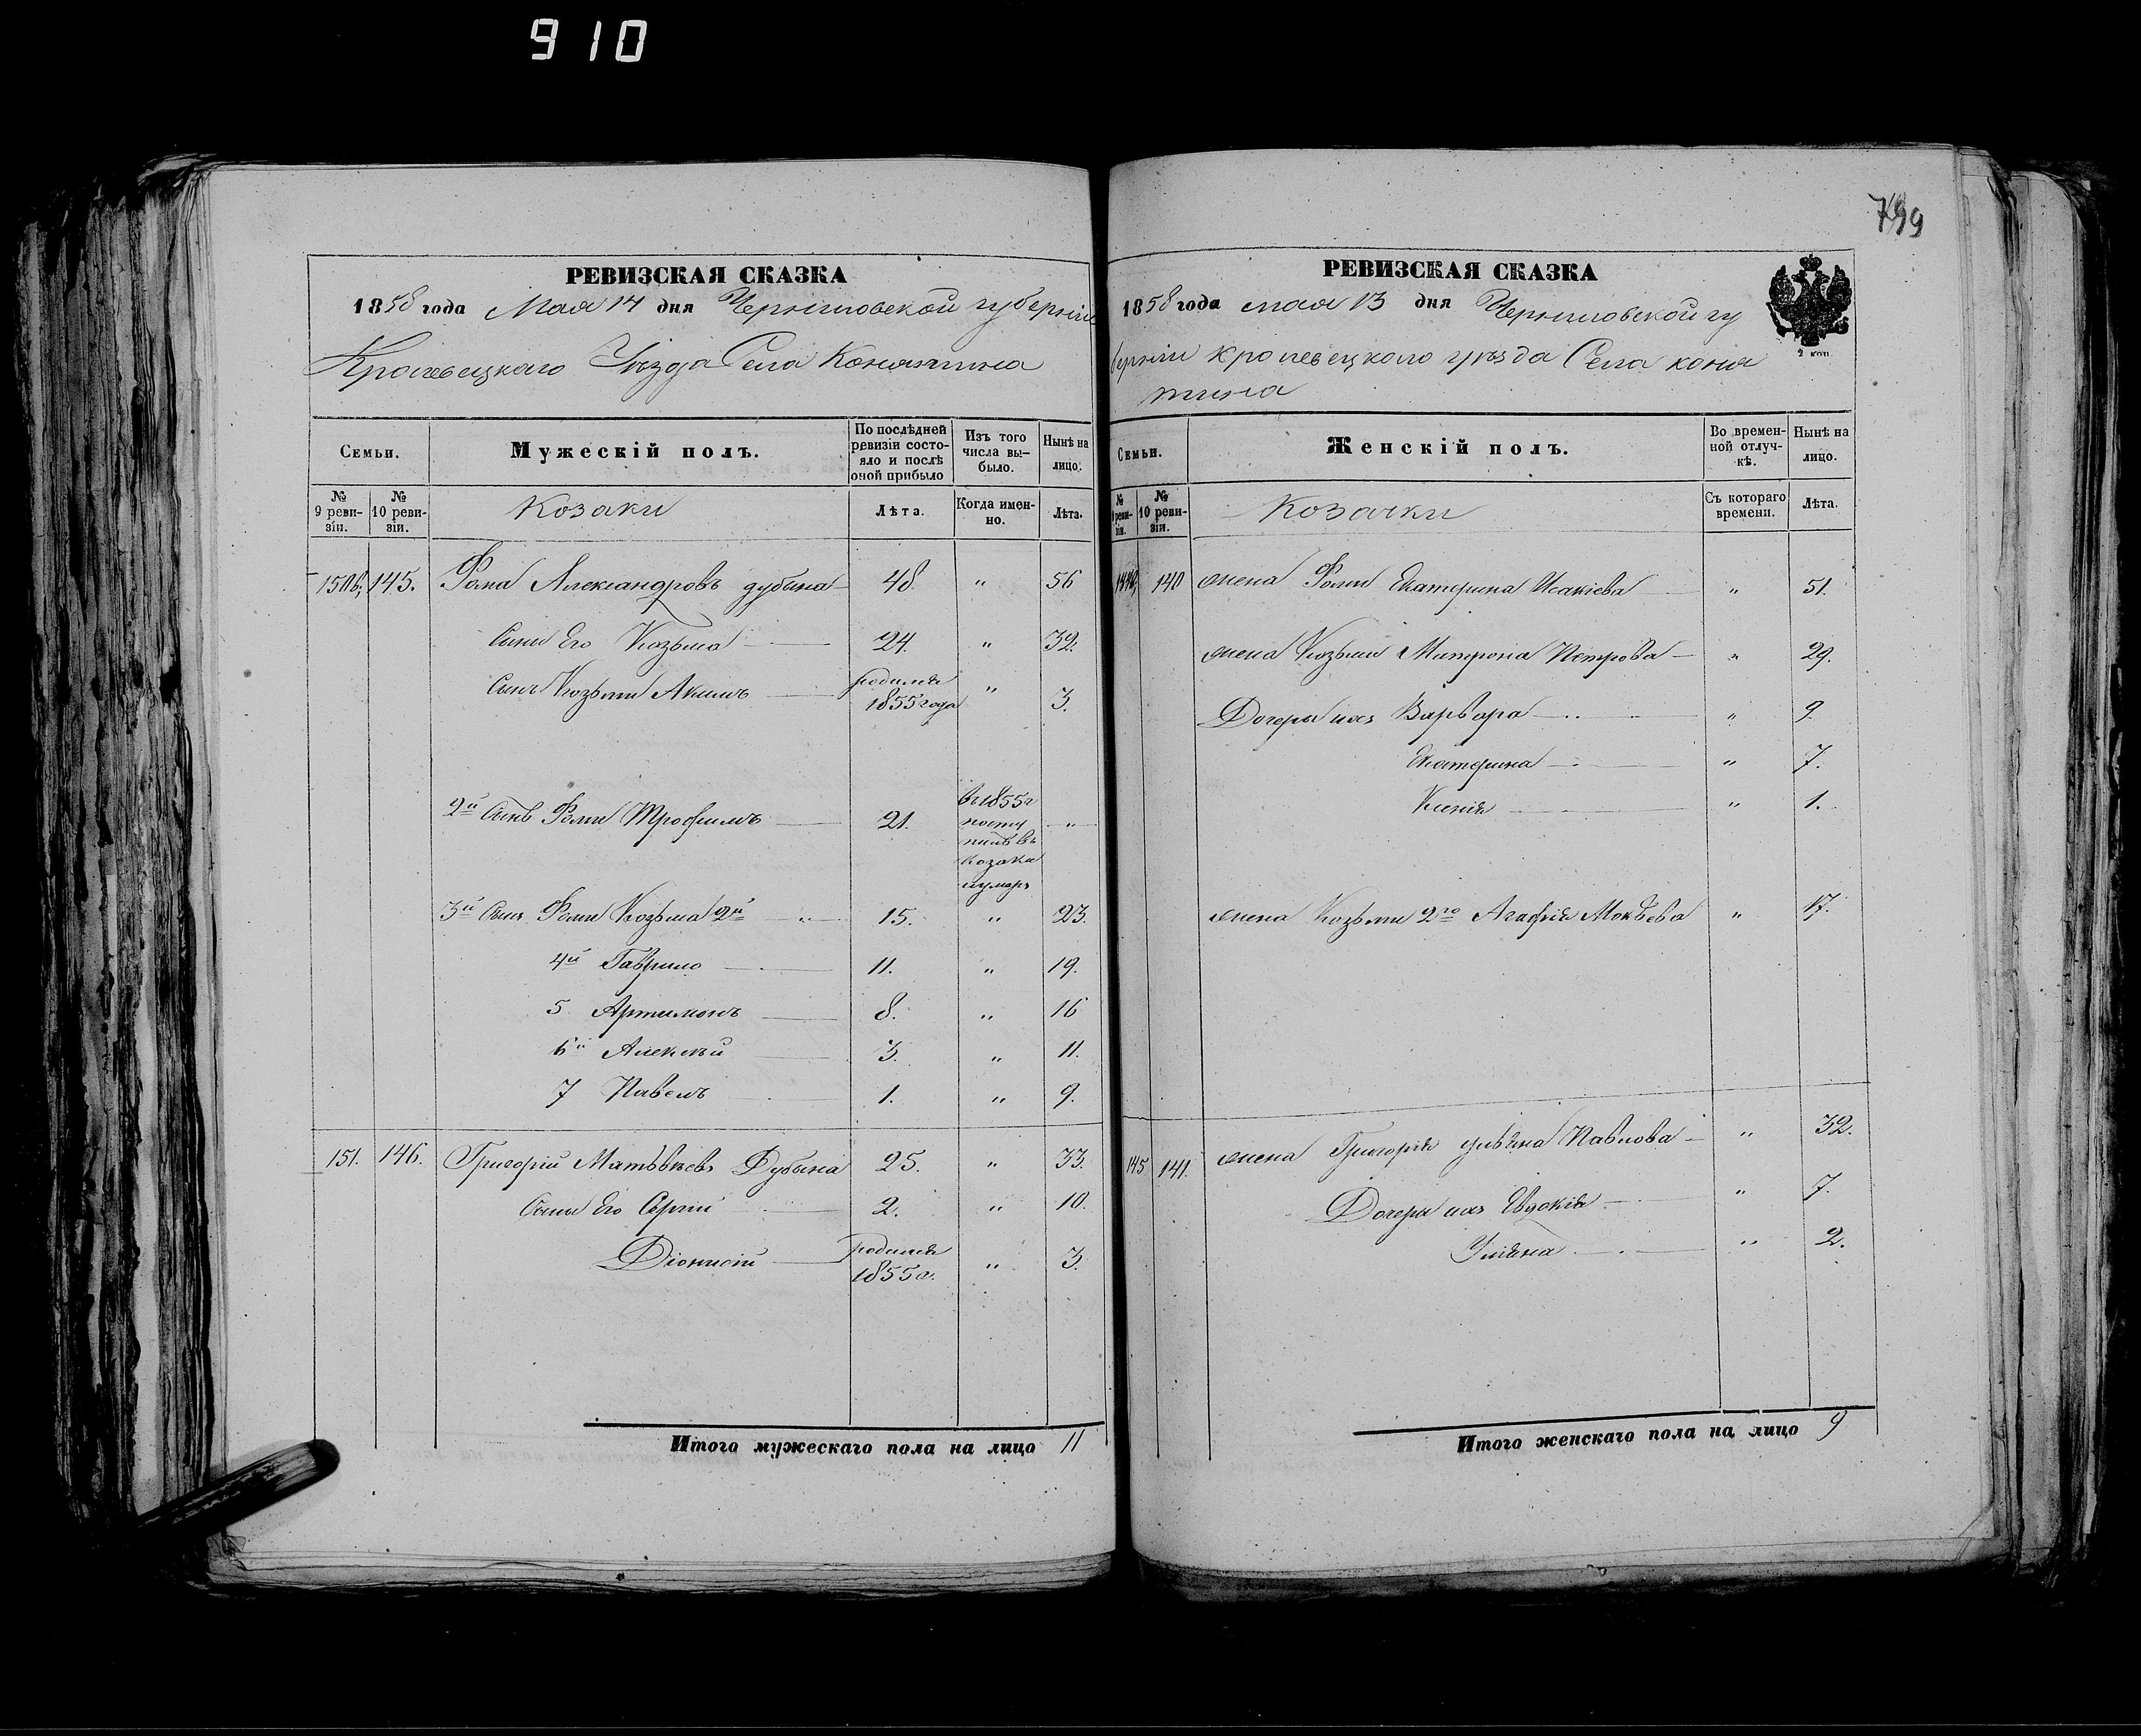 910
799
РЕВИЗСКАЯ СКАЗКА
1858 года Мая 14 дня Черниговской губерніи
Кролевецкаго Уѣзда Села Конятина
Семьи.
Мужескій полъ.
По послѣдней ревизіи состояло и послѣ оной прибыло
Изъ того числа выбыло.
Нынѣ на лицо.
№ 9 ревизіи.
№ 10 ревизіи.
Козаки
Лѣта.
Когда именно.
Лѣта.
145. Фома Александровъ дубина 48. " 56
Сыни Его Козьма 24. " 32.
Сынъ Козьми Акимъ родился 1855 года " 3.
2й Сынъ Фоми Трофимъ 21. въ 1855 г посту пилъ въ козаки "
3й Сынъ Фоми Козьма 2й " 15. " 23.
4й Гаврило 11. " 19.
5 Артимонъ 8. " 16
6й Алексѣй 3. " 11.
7 Павелъ 1. " 9.
151. 146. Григорій Матвѣевъ Дубина 25. " 33.
Сыни Его Сергій 2. " 10.
Діонисій родился 1855 г. " 3.
Итого мужескаго пола на лицо 11
РЕВИЗСКАЯ СКАЗКА
1858 года мая 13 дня Черниговской гу
берніи кролевецкого уѣзда Села коня
тина
2 коп.
Семьи.
Женскій полъ.
Во временной отлучкѣ.
Нынѣ на лицо.
№ 9 ревизіи.
№ 10 ревизіи.
Козачки
Съ котораго времени.
Лѣта.
140 жена Фоми Екатерина Исакіева " 51.
жена Козьми Митрона Петрова " 29.
Дочери ихъ Варвара " 9.
Екатерина " 7.
Ксенія " 1.
жена Козьми 2го Агафія Мокѣева " 17.
145 141. жена Григорія Ульяна Павлова " 32.
Дочери ихъ Евдокія " 7.
Уліяна " 2.
Итого женскаго пола на лицо 9